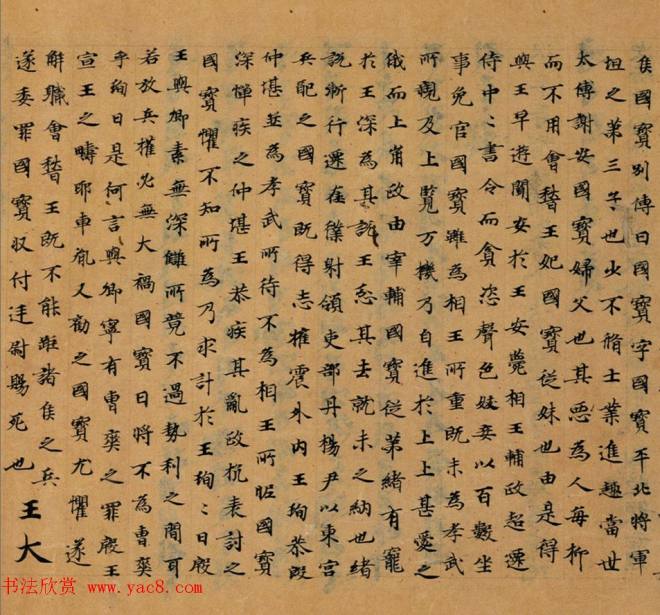 矦國寶別傅曰國寶字國寶平北將軍
坦之第三子也少不脩士業進趣當世
太傅謝安國寶婦父也其惡為人每抑
而不用會稽王妃國寶從妹也由是得
與王早遊間安於王安薨相王輔政超遷
侍中〻書令而貪恣聲色妓妾以百數坐
事免官國寶雖為相王所重既未為孝武
所親及上覽万機乃自進於上上甚愛之
俄而上崩政由宰輔國寶從弟緒有寵
於王深為其說王忿其去就未之納也緒
說漸行遷左僕射領吏部丹楊尹以東宮
兵配之國寶既得志權震外内王珣恭殷
仲堪並為孝武所待不為相王所眤國寶
深憚疾之仲堪王恭疾其亂政抗表討之
國寶懼不知所為乃求計於王珣〻曰殷
王與卿素無深讎所競不過勢利之間耳
若放兵權必無大禍國寶曰將不為曹爽
乎珣曰是何言與卿寧有曹爽之罪殷王
宣王之疇耶車胤又勸之國寶尤懼遂
解職會稽王既不能距諸矦之兵
遂委罪國寶収付廷尉賜死也王大
书法欣赏 www.yac8.com